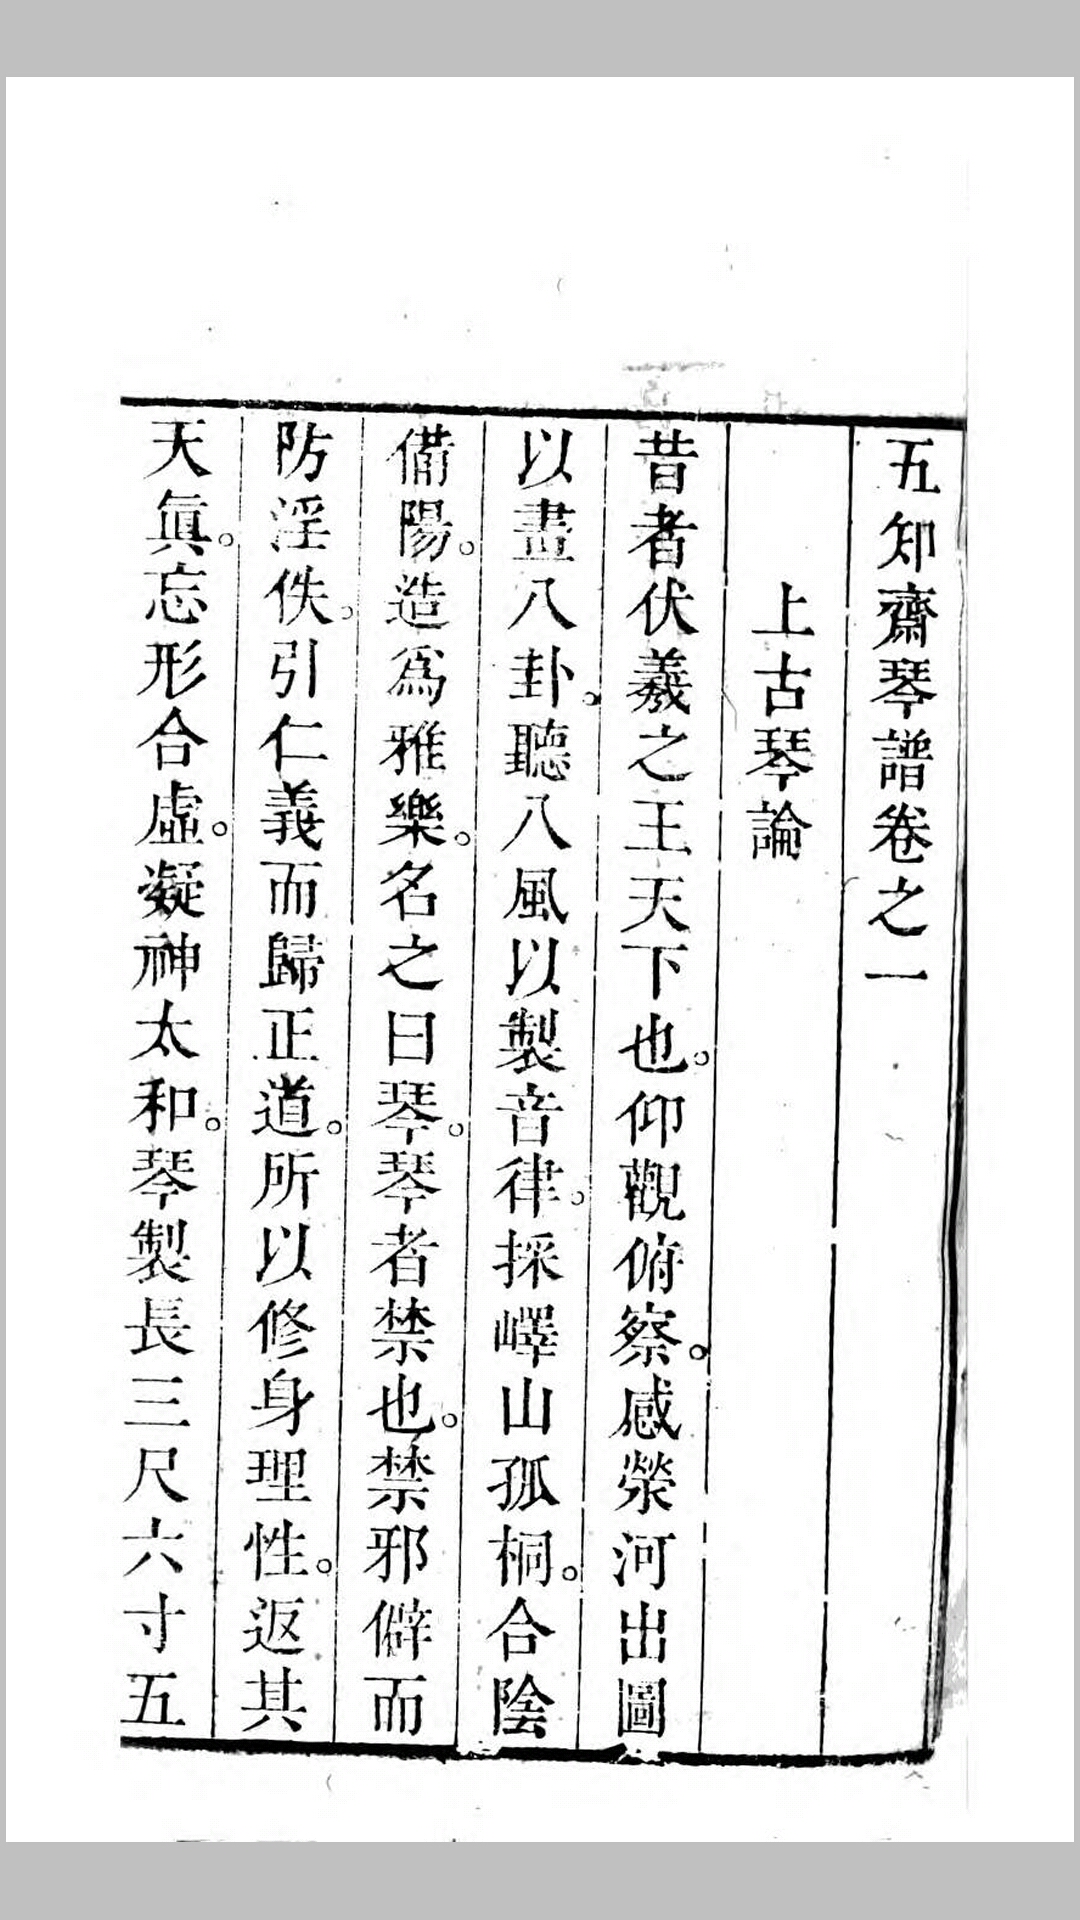 五知齋琴譜卷之一
上古琴論
昔者伏羲之王天下也。仰觀俯察。感滎河出圖
以畫八卦。聽八風以製音律。採嶧山孤桐。合陰
備陽。造爲雅樂。名之曰琴。琴者禁也。禁邪僻而
防淫佚。引仁義而歸正道。所以修身理性。返其
天眞。忘形合虛。凝神太和。琴製長三尺六寸五